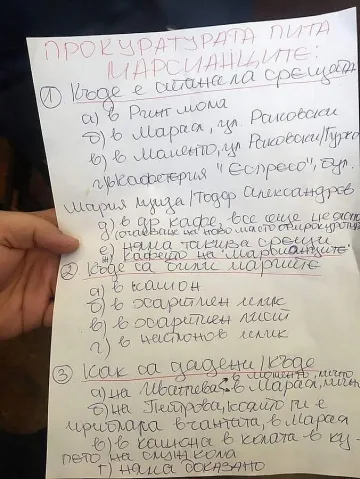 ПРОКУРАТУРАТА ПИТА
МАРСИАНЦИТЕ:
① Къде е станала срещата
а) в Ринг мола
б) в Марая, ул. Раковски
б) в Моменто, ул Раковски/Гурко
г) кафетерия "Еспресо", бул.
Мария Луиза/Тодор Александров
д) в др кафе, все още не
(очакваме на ново място от прокуратурата
е) няма такива срещи
ж) кафето на "Марсианците"
② Къде са били парите
а) в кашон
б) в хартиен плик
в) в хартиен лист
г) в найлонов плик
③ Как са дадени/къде
а) на Иванчева в Марая, лично
в Моменто, лично
б) на Петрова, която ги е
прибрала в чантата, в Марая
в) в кашона в колата в ку-
пето на
г) няма доказано